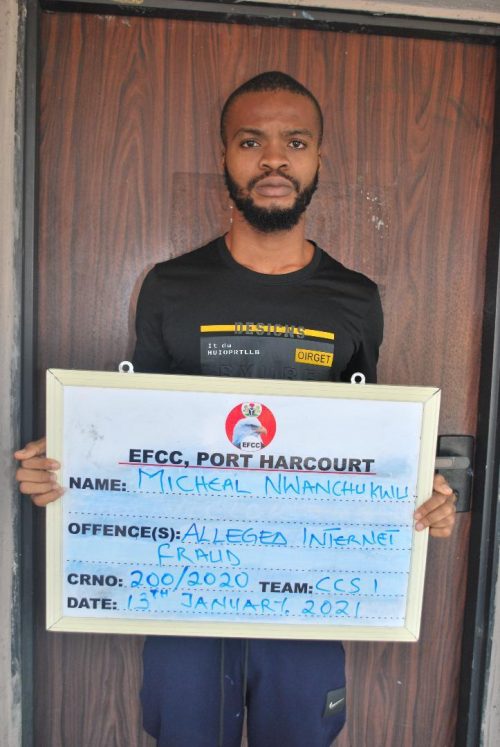 DESIGNS
It du
HUIOPRTLLB
OIRGET
EFCC
EFCC, PORT HARCOURT
NAME: MICHEAL NWANCHUKWU
OFFENCE(S): ALLEGED INTERNET
FRAUD
CRNO: 200/2020 TEAM: CCS 1
DATE: 13TH JANUARY, 2021